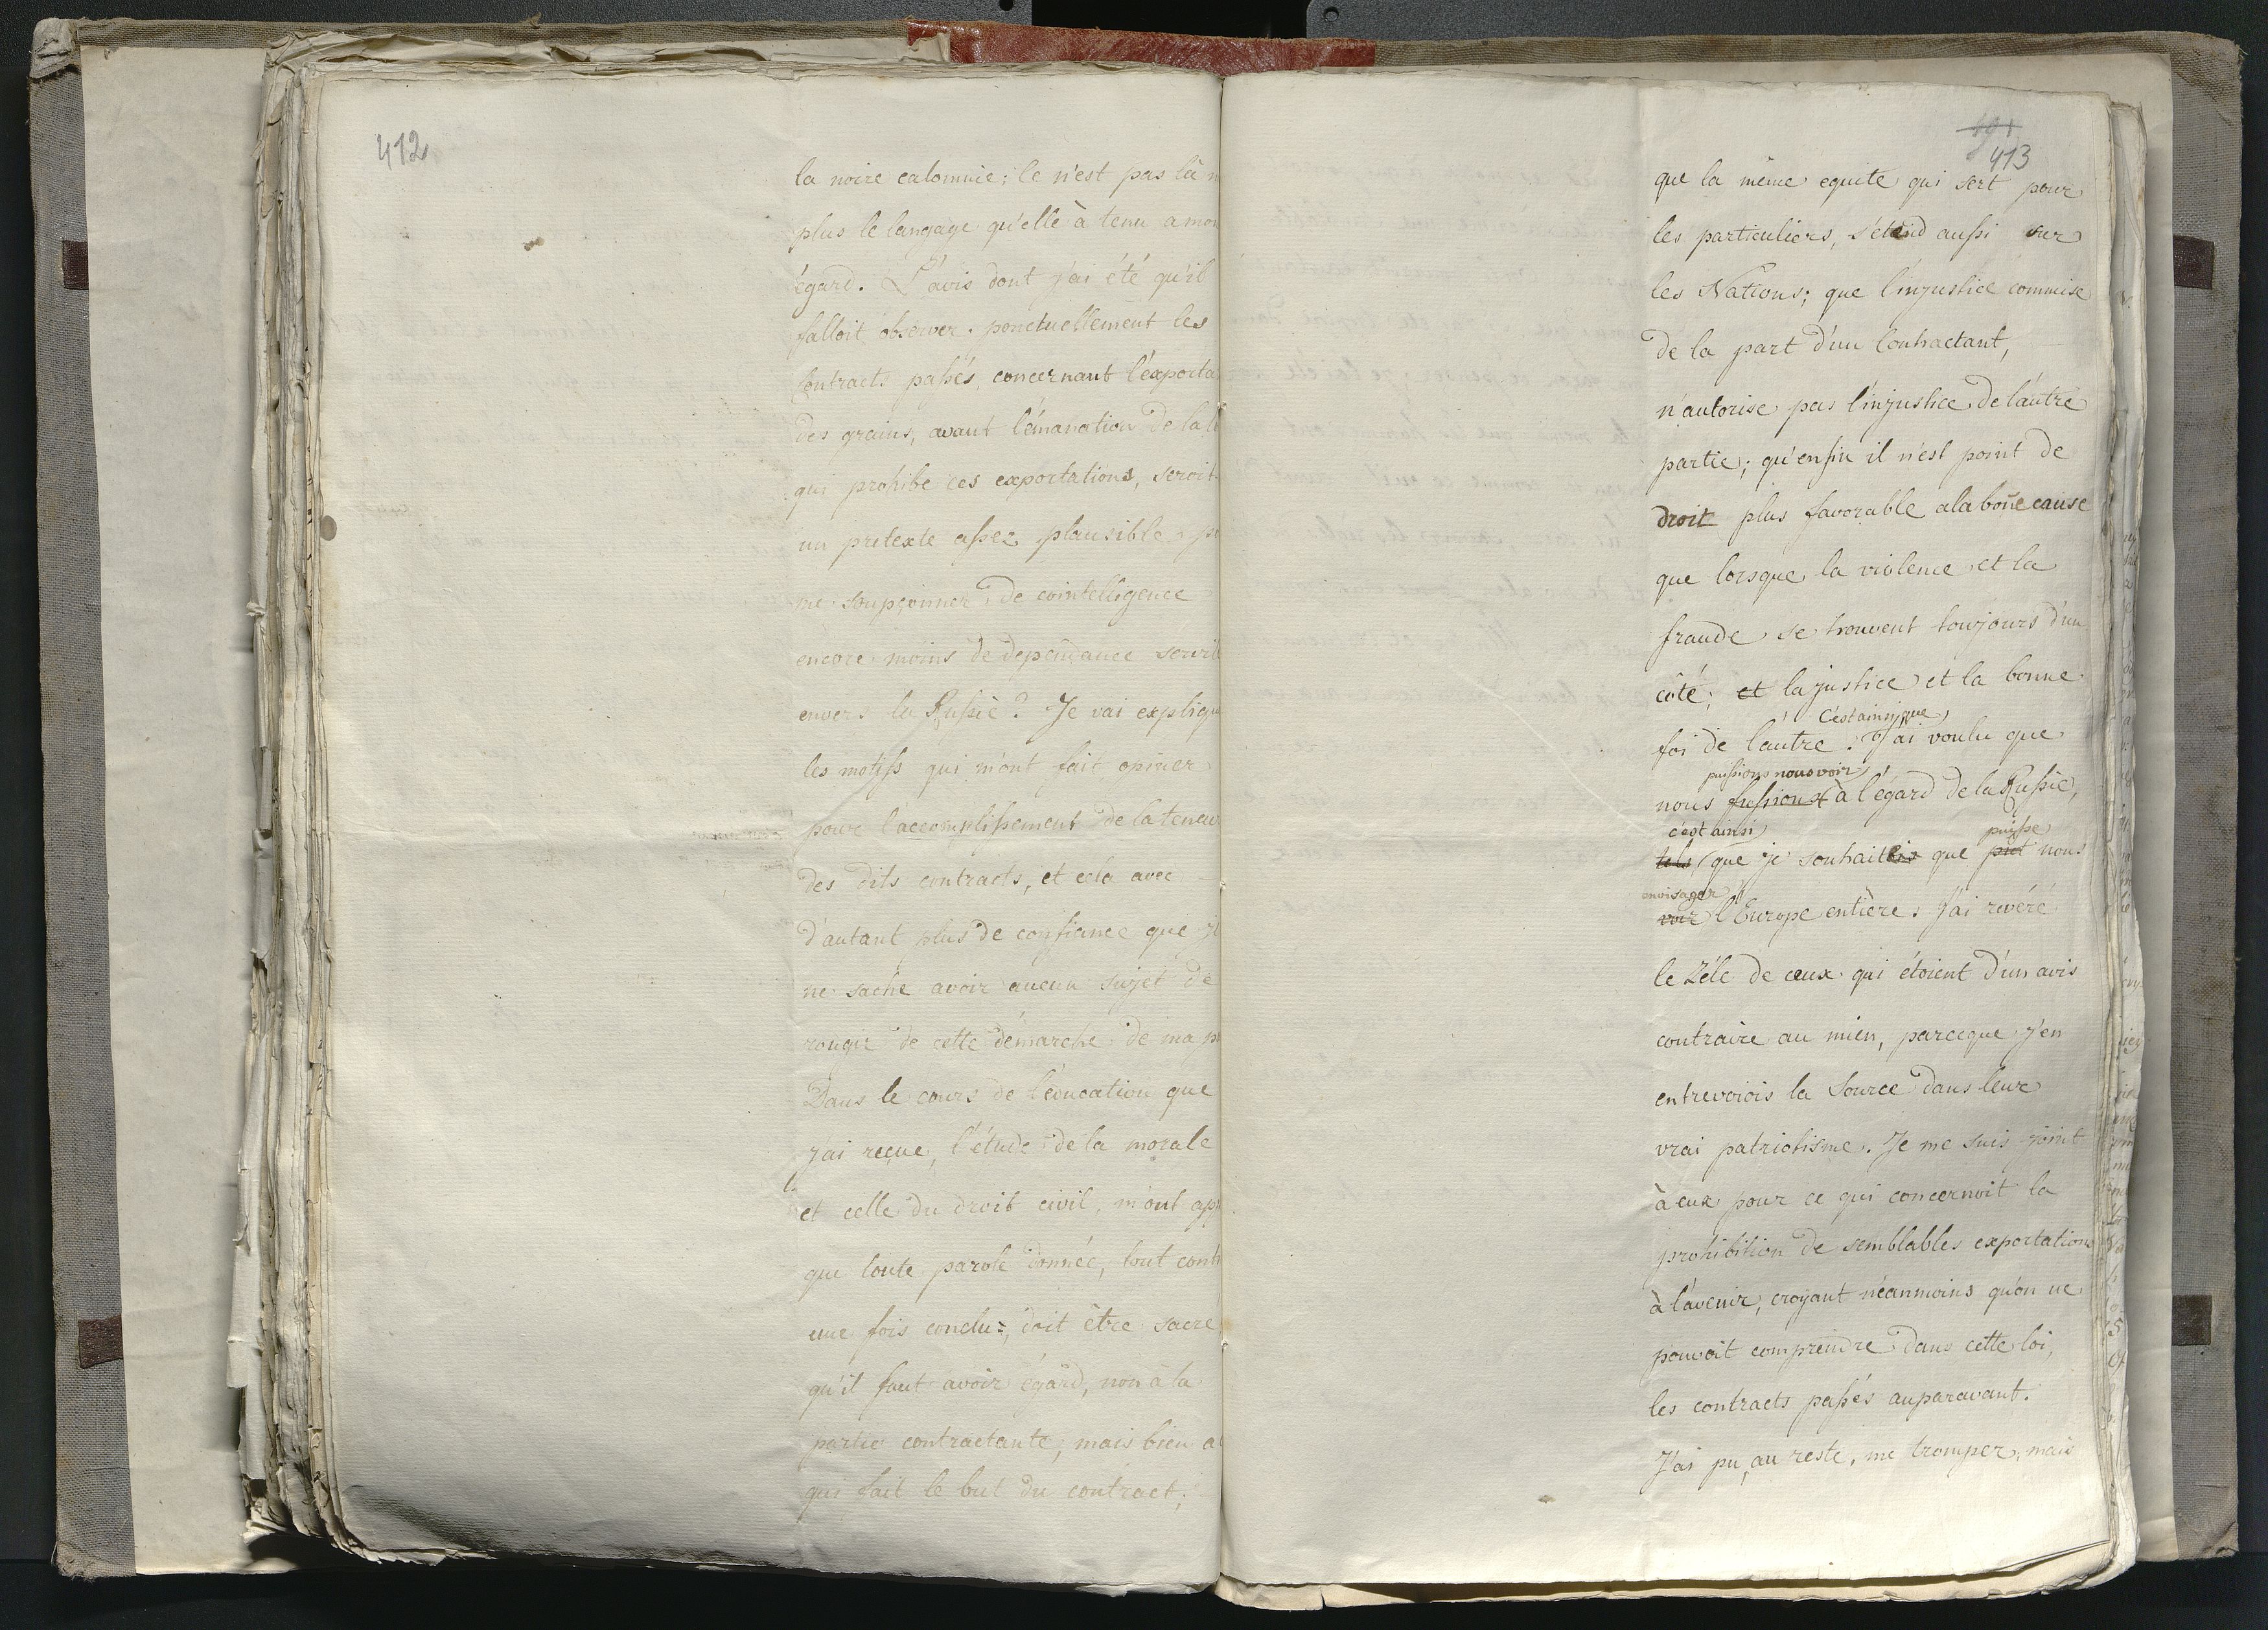 412
la noire calomnie; ce n'est pas là
plus le langage qu'elle à tenu a mon
égard. L'avis dont j'ai été qu'il
falloit observer ponctuellement les
Contracts passés, concernant l'exporta
des grains, avant l'émanation de la
qui prohibe ces exportations, seroit
un pretexte assez plausible
me soupçonner de cointelligence
encore moins de dependance servil
envers la Russie? Je vai explique
les motifs qui m'ont fait opiner
pour l'accomplissement de la teneur
des dits contracts, et cela avec
d'autant plus de confiance que je
ne sache avoir aucun sujet de
rougir de cette démarche de ma
Dans le cours de l'éducation que
j'ai reçue, l'étude de la morale
et celle du droit civil, m'ont app
que toute parole donnée, tout cont
une fois conclu, doit être sacré
qu'il faut avoir égard, non à la
partie contractante, mais bien a
qui fait le but du contract;
413
que la même equité qui sert pour
les particuliers, s'étend aussi sur
les Nations; que l'injustice commise
de la part d'un Contractant,
n'autorise pas l'injustice de l'autre
partie; qu'enfin il n'est point de
droit plus favorable a la bone cause
que lorsque la violence et la
fraude se trouvent toujours d'un
côté, et la justice et la bonne
C'est ainsi que
foi de l'autre. J'ai voulu que
puissions nous voir
nous fussions à l'égard de la Russie,
c'est ainsi puisse
tels que je souhaitois que put nous
envisager
voir l'Europe entière. J'ai révéré
le Zéle de ceux qui étoient d'un avis
contraire au mien, parceque j'en
entrevoiois la Source dans leur
vrai patriotisme. Je me suis joint
à eux pour ce qui concernoit la
prohibition de semblables exportations
à l'avenir, croyant néanmoins qu'on ne
pouvoit comprendre dans cette loi,
les contracts passés auparavant.
J'ai pu, au reste, me tromper, mais